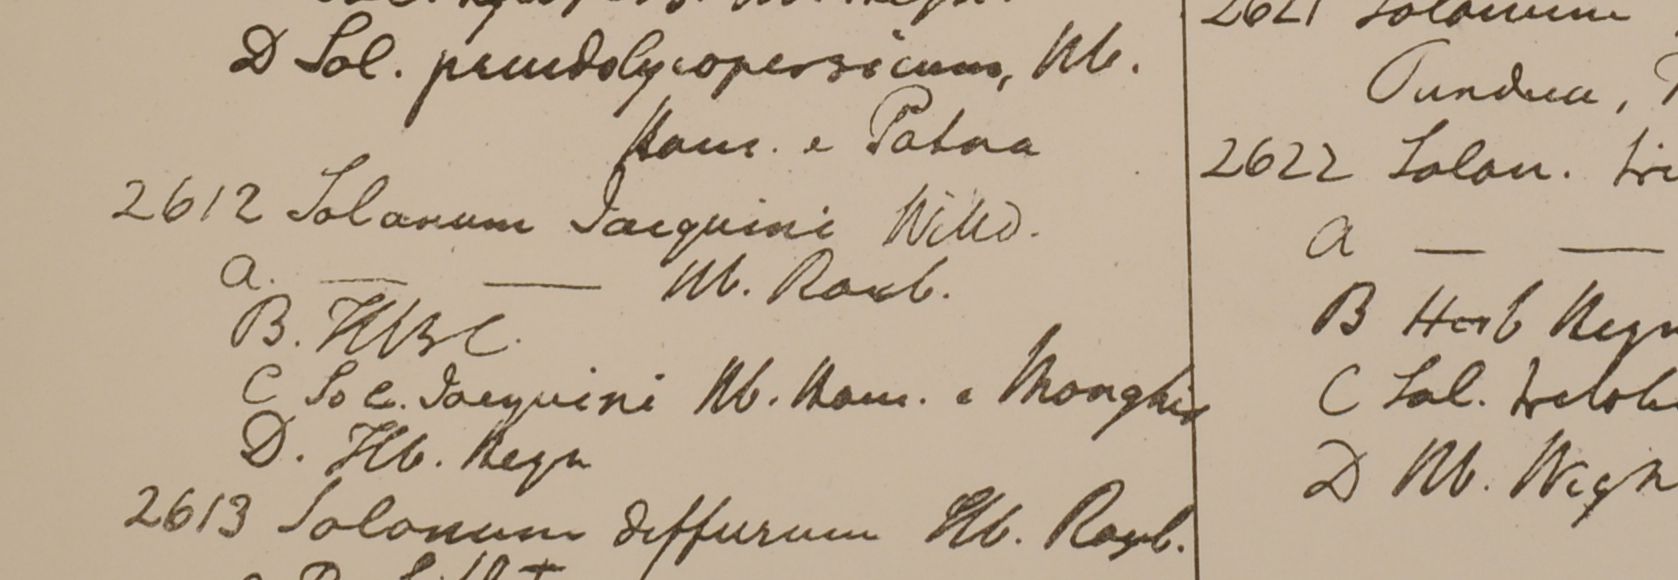 D Sol. pseudolycopersicum, Hb.
Ham. e Patna
2612 Solanum Jacquini Willd.
a. — — Hb. Roxb.
B. HBC.
C Sol. Jacquini Hb. Ham. e Monghir
D. Hb. Heyn
2613 Solanum diffusum Hb. Roxb.
2621 Solanum
Pundua,
2622 Solan.
a — —
B Herb Heyn
C Sol. trilob
D Hb. Wigh